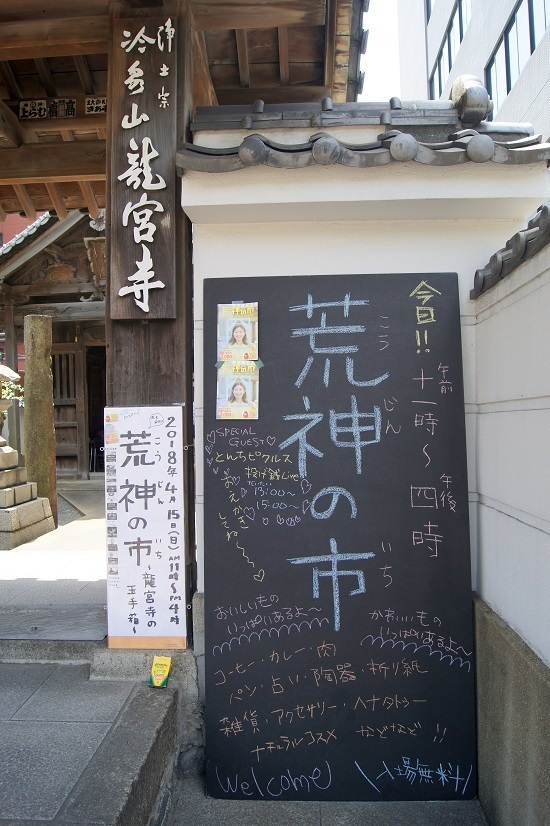 浄土宗
冷泉山龍宮寺
今日!!
午前
十一時~
午後
四時
荒神の市
こう じん いち
SPECIAL
GUEST
とんちピクルス
投げ銭Live
13:00~
15:00~
おえかき
してね~
おいしいもの
いっぱいあるよ~
かわいいもの
いっぱいあるよ~
コーヒー・カレー・肉
パン・占い・陶器・折り紙
雑貨・アクセサリー・ヘナタトゥー
ナチュラルコスメ などなど!!
Welcome
入場無料
2018年4月15日(日)
AM11時~PM4時
荒神の市
こう じん いち
~龍宮寺の
玉手箱~